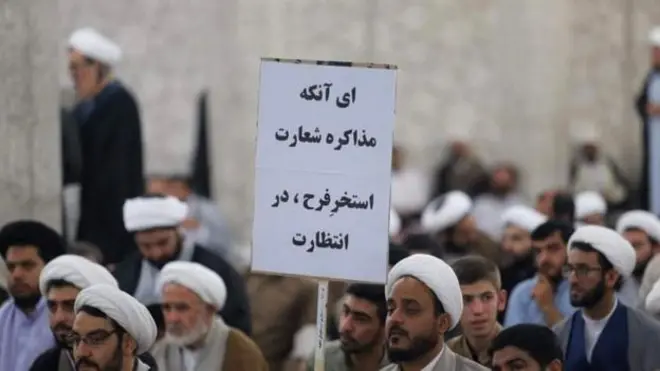 ای آنکه
مذاکره شعارت
استخرِ فرح ، در
انتظارت